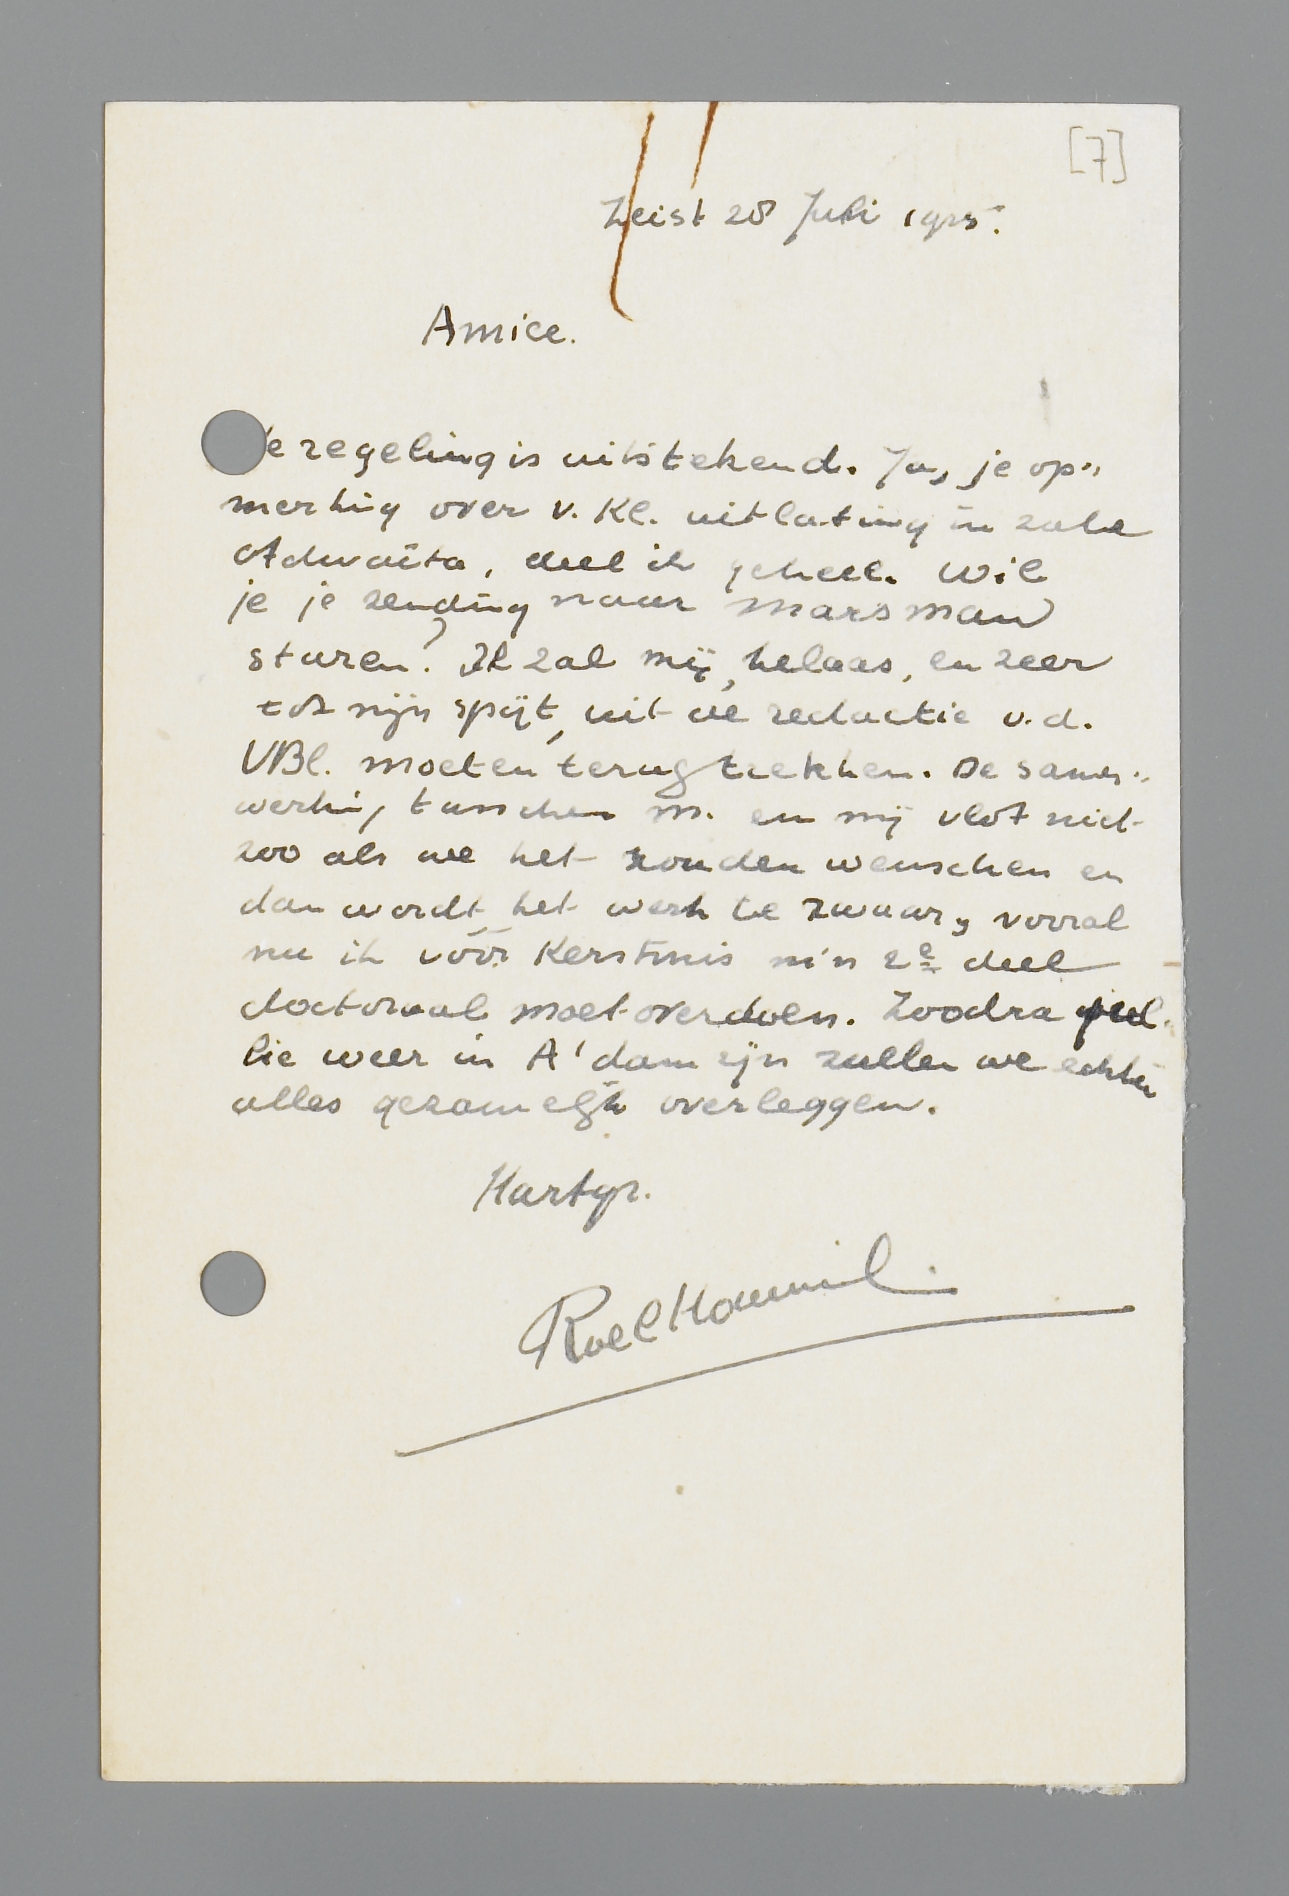 [7]
Zeist 28 Juli 1925.
Amice.
De regeling is uitstekend. Ja, je op"
merking over v. Kl. uitlating in zake
Adwaita, deel ik geheel. Wil
je je zending naar Marsman
sturen? Ik zal mij, helaas, en zeer
tot mijn spijt, uit de redactie v.d.
VBl. moeten terugtrekken. De samen"
werking tusschen M. en mij vlot niet
zoo als we het zouden wenschen en
dan wordt het werk te zwaar, vooral
nu ik vóór Kerstmis m'n 2e deel
doctoraal moet overdoen. Zoodra jul-
lie weer in A'dam zijn zullen we echter
alles gezamelijk overleggen.
Hartgr.
Roel Houwink.